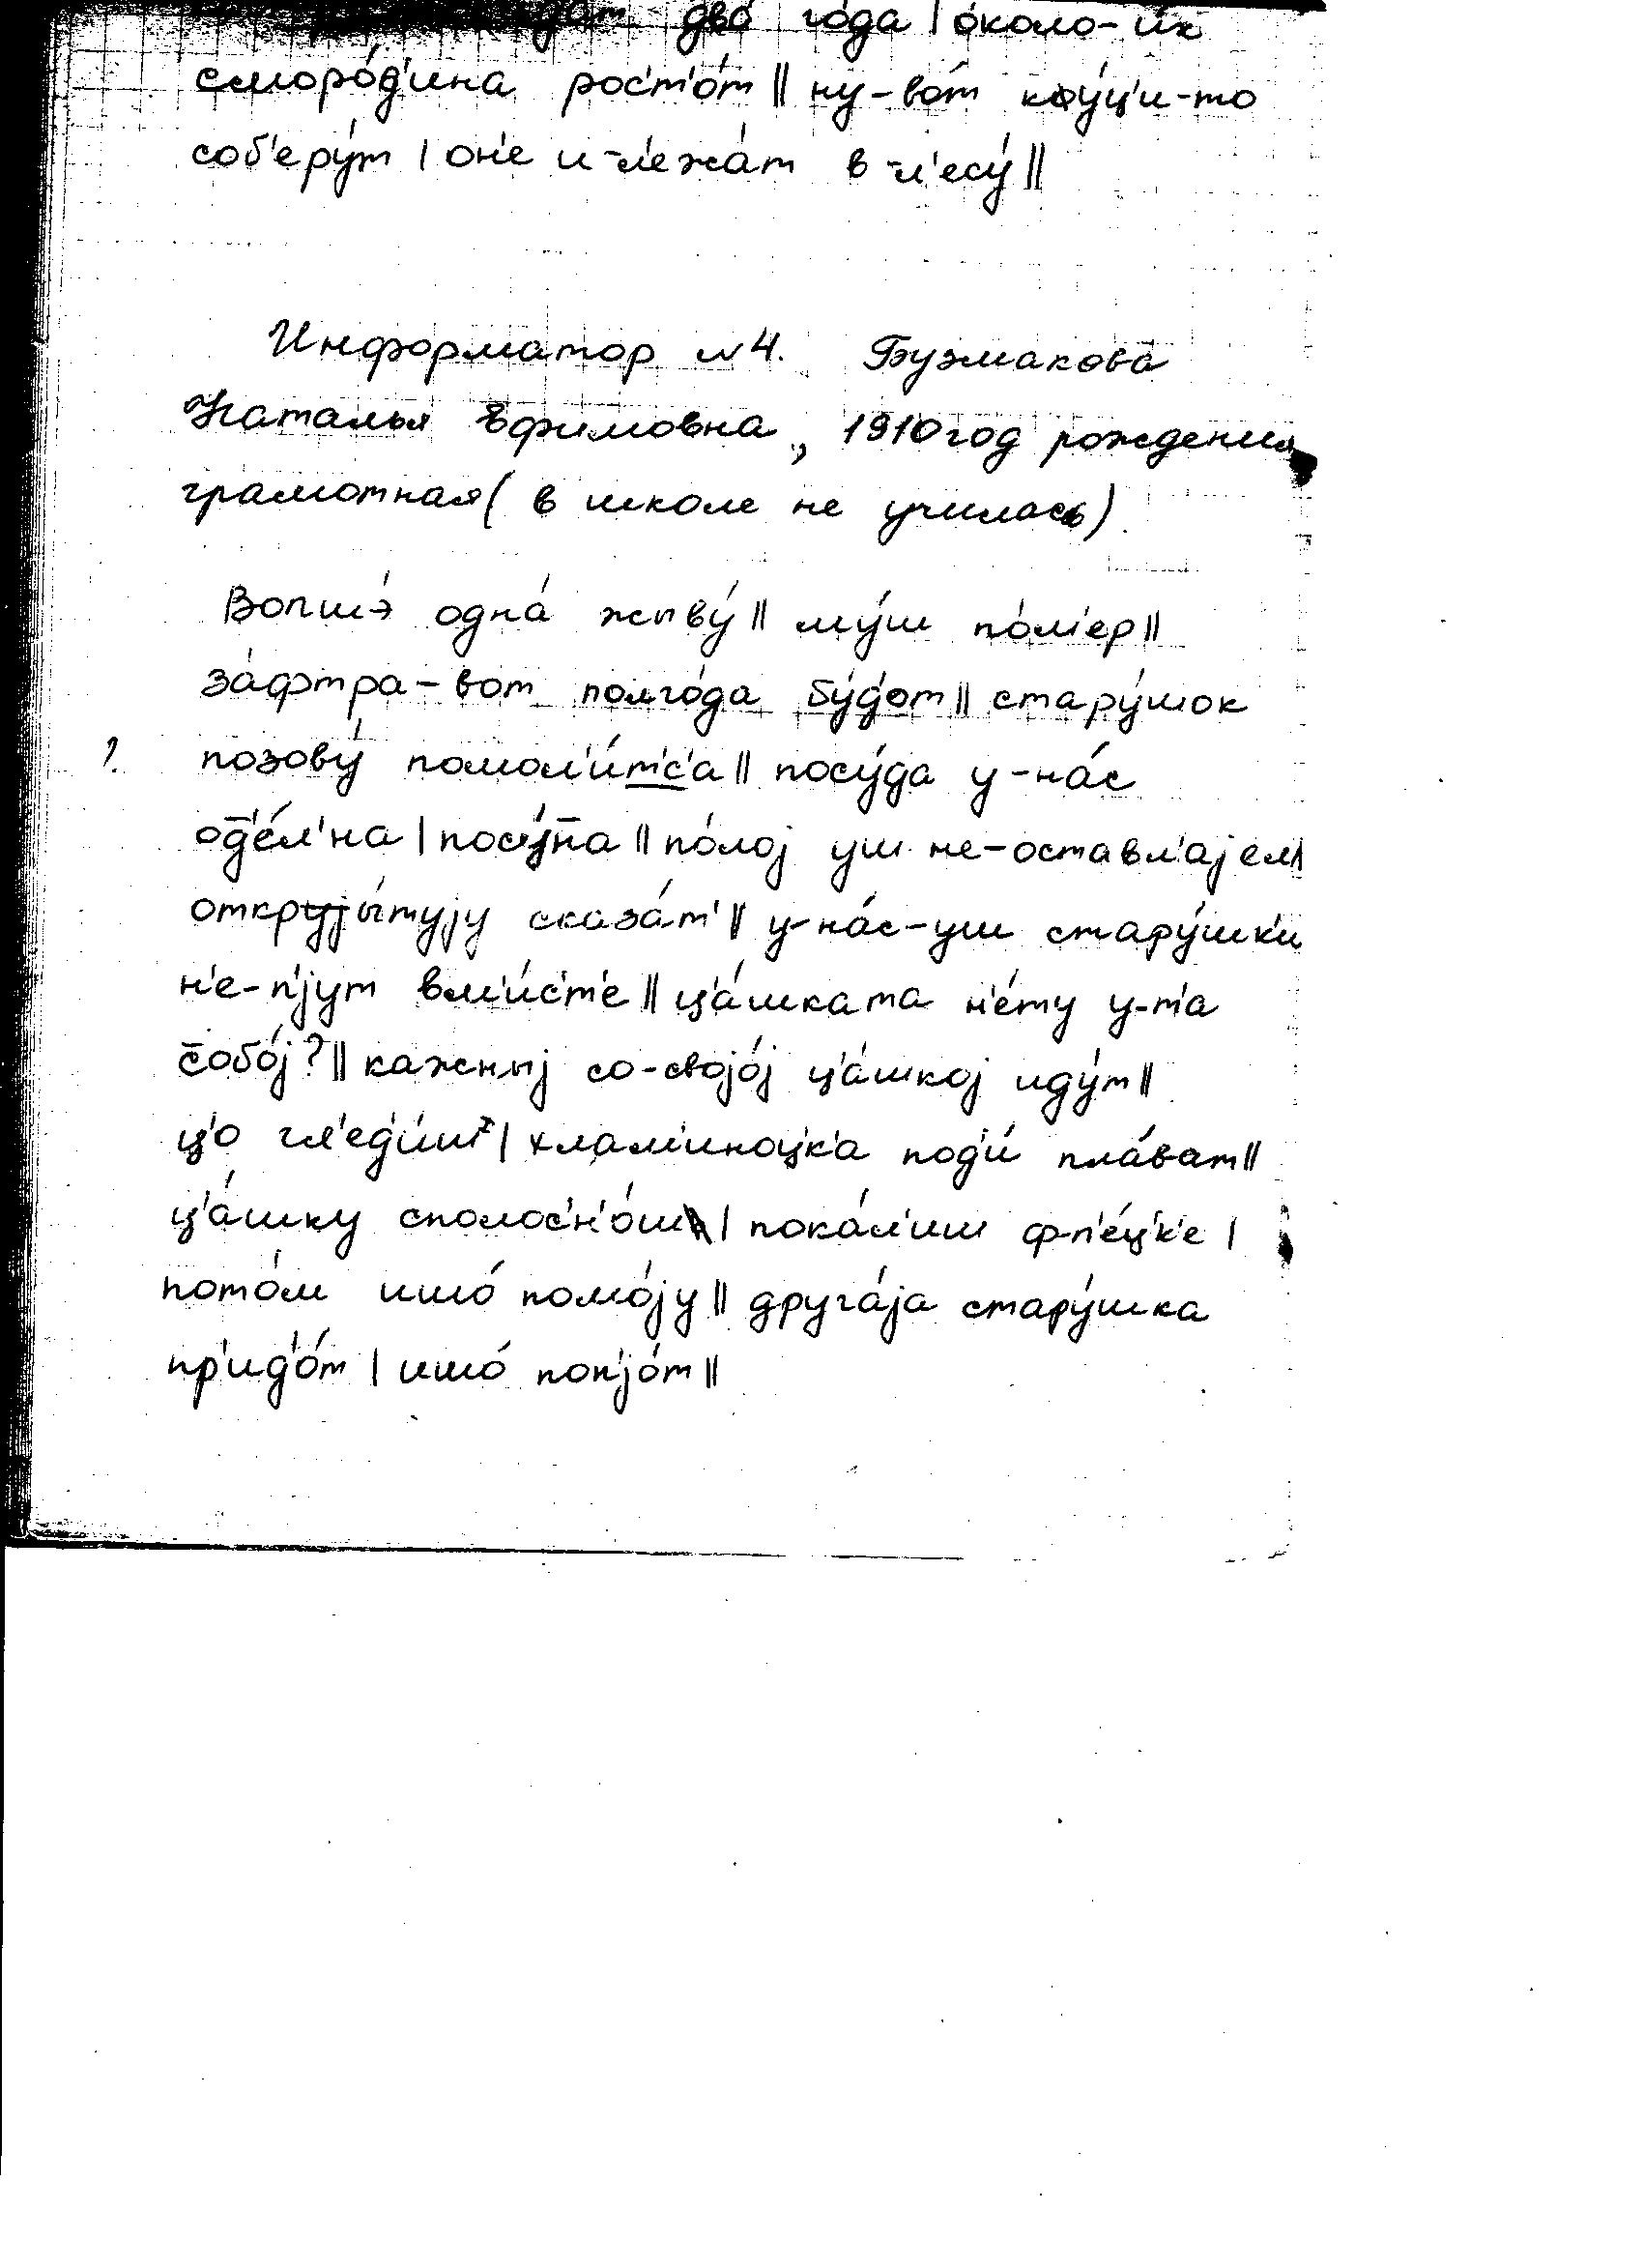 два́ го́да | о́коло-и́х
сморо́д'ина рос'т'о́т || ну-во́т ку́ц'и-то
соб'еру́т | он'е и-л'ежа́т в-л'есу́ ||
Информатор №4. Бузмакова
Наталья Ефимовна, 1910 год рождения
грамотная (в школе не училась)
Вопшэ́ одна́ жыву́ || му́ш по́м'ер ||
за́фтра-вот полго́да бу́д'от || стару́шок
?. позову́ помол'и́т'с'а || посу́да у-на́с
од̄'е́л'на | посу́па || по́лој уш не-оставл'ајем
откры́тују сказа́т' || у-на́с-уш стару́шк'и
н'е-п'јут вм'и́с'т'е || ц'а́шката н'е́ту у-т'а
с̄обо́ј? || кажныј со-својо́ј ц'а́шкој иду́т ||
ц'о гл'ед'и́ш | хлам'иноцк'а под'и́ пла́ват ||
ц'а́шку сполос'н'о́ш | пока́л'иш ф-п'е́ц'к'е |
пото́м ишо́ помо́ју || друга́ја стару́шка
пр'ид'о́т | ишо́ поп'јо́т ||